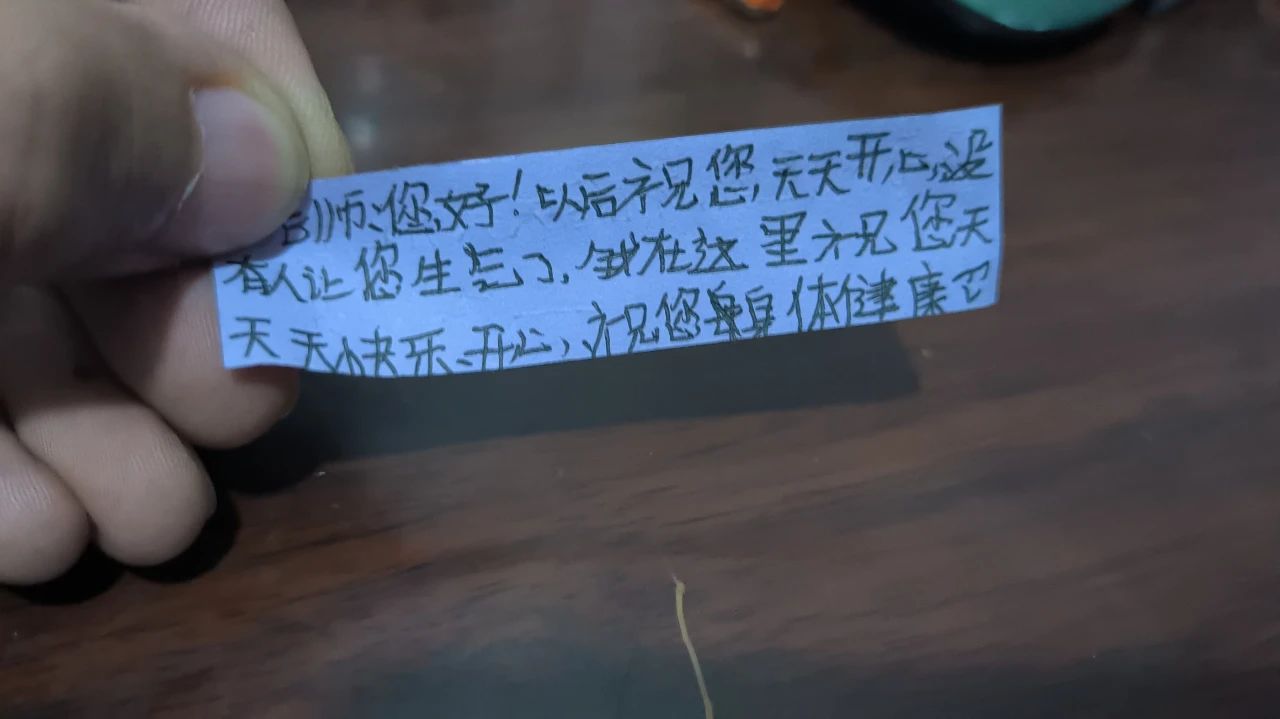 师:您好!以后祝您,天天开心,没
有人让您生气了,我在这里祝您天
天天快乐、开心,祝您身体健康